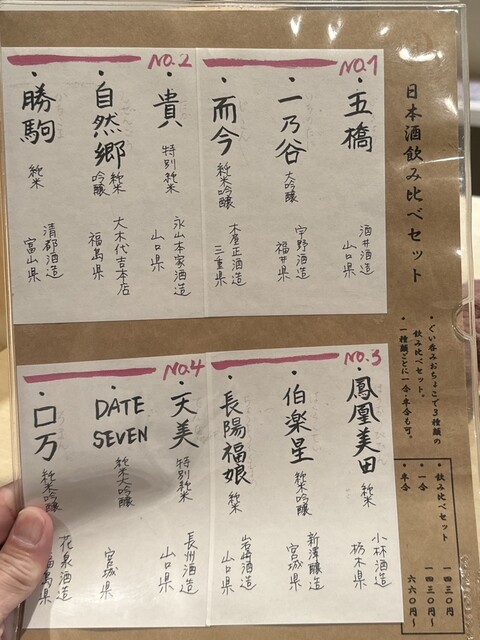 日本酒飲み比べセット
・ぐい呑みおちょこで3種類の
飲み比べセット。
・一種類ごとに一合・半合も可。
・飲み比べセット 一四三〇円
・一合 一四三〇円～
・半合 六六〇円～
NO.1
・五橋
酒井酒造
山口県
・一乃谷 大吟醸
宇野酒造
福井県
・而今 純米吟醸
木屋正酒造
三重県
NO.2
・貴 特別純米
永山本家酒造
山口県
・自然郷 純米
吟醸
大木代吉本店
福島県
・勝駒 純米
清都酒造
富山県
NO.3
・鳳凰美田 純米
小林酒造
栃木県
・伯楽星 純米吟醸
新澤醸造
宮城県
・長陽福娘 純米
岩崎酒造
山口県
NO.4
・天美 特別純米
長州酒造
山口県
・DATE
SEVEN
純米大吟醸
宮城県
・ロ万 純米吟醸
花泉酒造
福島県